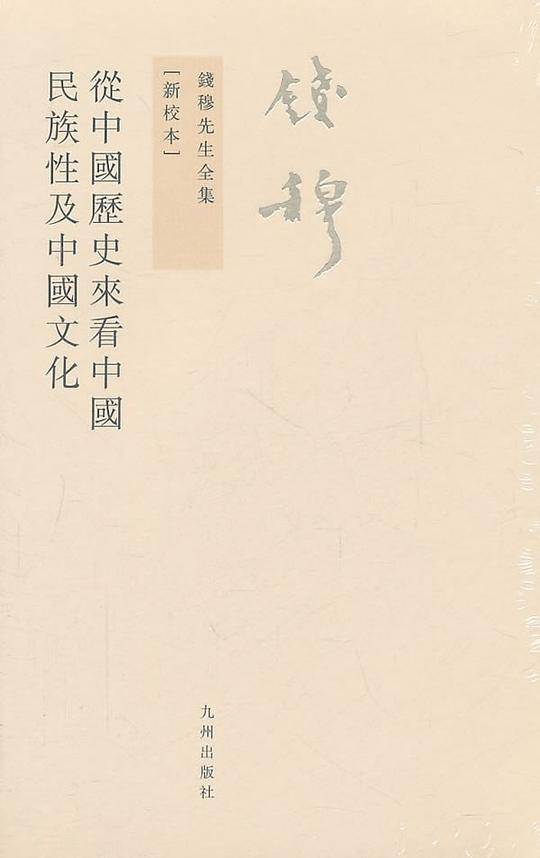 錢穆
錢穆先生全集
［新校本］
從中國歷史來看中國
民族性及中國文化
九州出版社